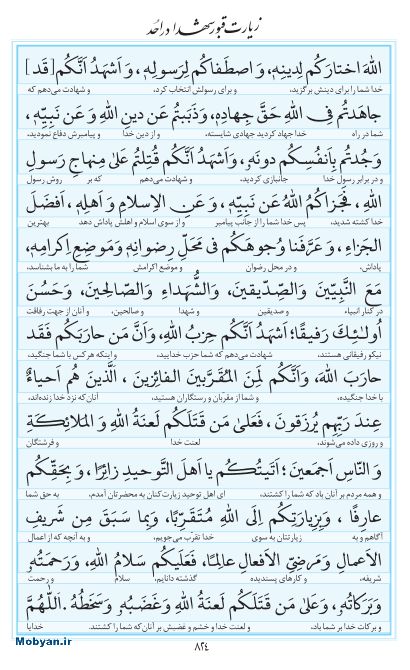 زیارت قبور شهدا در اُحُد
اللهَ اختارَكُم لِدينِهِ، وَ اصطَفاكُم لِرَسولِهِ، وَ اَشهَدُ اَنَّكُم [قَد]
خدا شما را برای دینش برگزید، و برای رسولش انتخاب کرد، و شهادت می‌دهم که
جاهَدتُم فِي اللهِ حَقَّ جِهادِهِ، وَ ذَبَبتُم عَن دينِ اللهِ وَ عَن نَبِيِّهِ،
شما در راه خدا جهاد کردید جهادی شایسته، و از دین خدا و پیامبرش دفاع نمودید،
وَ جُدتُم بِاَنفُسِكُم دونَهُ، وَ اَشهَدُ اَنَّكُم قُتِلتُم عَلىٰ مِنهاجِ رَسولِ
و در برابر رسول خدا جانبازی کردید، و شهادت می‌دهم که بر روش رسول
اللهِ، فَجَزاكُمُ اللهُ عَن نَبِيِّهِ، وَ عَنِ الاِسلامِ وَ اَهلِهِ، اَفضَلَ
خدا کشته شدید، پس خدا شما را از جانب پیامبر و از سوی اسلام و اهلش پاداش دهد بهترین
الجَزاءِ، وَ عَرَّفَنا وُجوهَكُم في مَحَلِّ رِضوانِهِ وَ مَوضِعِ اِكرامِهِ،
پاداش، و در محل رضوان و موضع اکرامش شما را به ما بشناسد،
مَعَ النَّبِيّينَ وَ الصِّدّيقينَ، وَ الشُّهَداءِ وَ الصّالِحينَ، وَ حَسُنَ
در کنار انبیاء و صدیقین و شهدا و صالحین، و آنان از جهت رفاقت
اُولـٰئِكَ رَفيقًا؛ اَشهَدُ اَنَّكُم حِزبُ اللهِ، وَ اَنَّ مَن حارَبَكُم فَقَد
نیکو رفیقانی هستند، شهادت می‌دهم که شما حزب خدایید، و اینکه هر کس با شما جنگید،
حارَبَ اللهَ، وَ اَنَّكُم لَمِنَ المُقَرَّبينَ الفائِزينَ، اَلَّذينَ هُم اَحياءٌ
با خدا جنگیده، و شما از مقربان و رستگاران هستید، آنان‌که نزد خدا زنده‌اند،
عِندَ رَبِّهِم يُرزَقونَ، فَعَلىٰ مَن قَتَلَكُم لَعنَةُ اللهِ وَ المَلائِكَةِ
و روزی داده می‌شوند، لعنت خدا و فرشتگان
وَ النّاسِ اَجمَعينَ؛ اَتَيتُكُم يا اَهلَ التَّوحيدِ زائِرًا، وَ بِحَقِّكُم
و همه مردم بر آنان باد که شما را کشتند، ای اهل توحید زیارت‌کنان به محضرتان آمدم، به حق شما
عارِفًا، وَ بِزِيارَتِكُم اِلَى اللهِ مُتَقَرِّبًا، وَ بِما سَبَقَ مِن شَريفِ
آگاهم و به زیارتتان به سوی خدا تقرب می‌جویم، و به آنچه که از اعمال
الاَعمالِ وَ مَرضِيِّ الاَفعالِ عالِمًا، فَعَلَيكُم سَلامُ اللهِ، وَ رَحمَتُهُ
شریفه، و کارهای پسندیده گذشته دانایم، سلام و رحمت
وَ بَرَكاتُهُ، وَ عَلىٰ مَن قَتَلَكُم لَعنَةُ اللهِ وَ غَضَبُهُ وَ سَخَطُهُ. اَللّٰهُمَّ
و برکات خدا بر شما باد، و لعنت خدا و خشم و غضبش بر آنان که شما را کشتند. خدایا
۸۲۴
Mobyan.ir